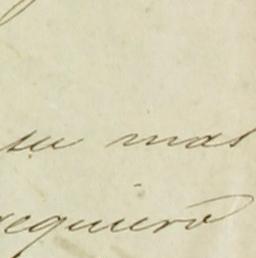 su mas
requiera